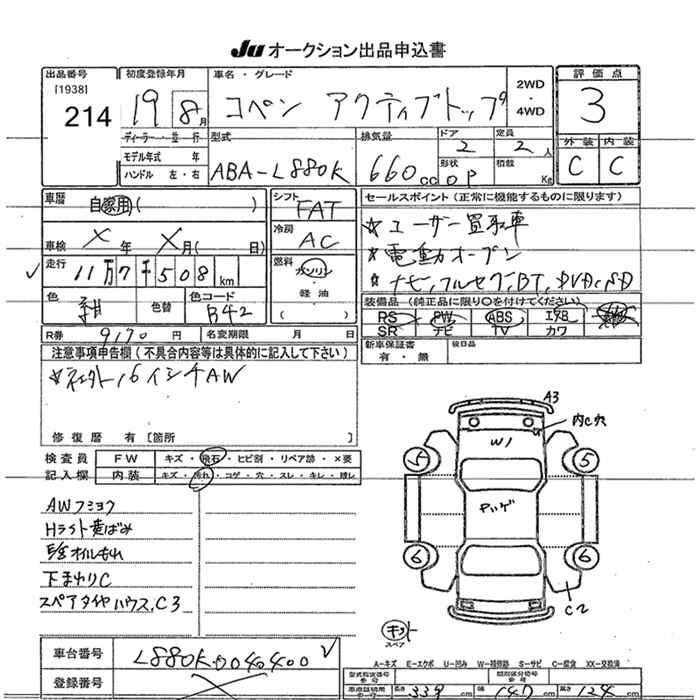 JU オークション出品申込書
出品番号 初度登録年月 車名・グレード 2WD・4WD 評価点
[1938] 214 19 8月 コペン アクティブトップ 3
ディーラー・並行 型式 排気量 ドア 定員 外装 内装
モデル年式 年 2 2人
ハンドル 左・右 ABA-L880K 660cc 形状 OP 積載 Kg C C
車歴 自家用( ) シフト FAT セールスポイント(正常に機能するものに限ります)
☆ユーザー買取車
車検 X年 X月( 日) 冷房 AC ☆電動オープン
走行 11万7千508km 燃料 ガソリン・軽油 ( ) ☆ナビ,フルセグ,BT,DVD,SD
色 紺 色替 色コード B42 装備品(純正品に限り○を付けてください)
RS PW ABS エアB
SR ナビ TV カワ
R券 9170円 名変期限 月 日 新車保証書 有・無 後日品
注意事項申告欄(不具合内容等は具体的に記入して下さい)
☆社外16インチAW
修復歴 有[箇所 ]
検査員 FW キズ・飛石・ヒビ割・リペア跡・×要
記入欄 内装 キズ・汚れ・コゲ・穴・スレ・キレ・破レ
A3
内C穴
W1
5 5
6 6
C2
AWフショク
Hライト黄ばみ
オイルもれ
下まわりC
スペアタイヤハウス,C3
キット
スペア
車台番号 L880K-0040400
登録番号
A-キズ E-エクボ U-凹み W-補修跡 S-サビ C-腐食 XX-交換済
型式指定番号 類別区分番号
長さ 339cm 幅 147cm 高さ 124cm